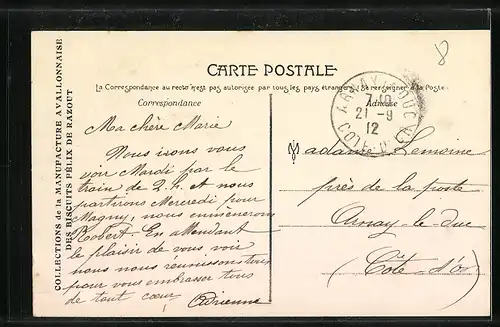 8
CARTE POSTALE
La Correspondance au recto n'est pas autorisée par tous les pays étrangers (Se renseigner à la Poste)
Correspondance
Adresse
ARNAY-LE-DUC
7-10
21-9
12
COTE-D'OR
COLLECTIONS de la MANUFACTURE AVALLONNAISE
DES BISCUITS FÉLIX DE RAZOUT
Ma chère Marie
Nous irons vous
voir Mardi par le
train de 2 h. et nous
partirons Mercredi pour
Magny, nous emmènerons
Robert. En attendant
le plaisir de vous voir
nous nous réunissons tous
pour vous embrasser tous
de tout cœur. Adrienne
Madame Lemoine
près de la poste
Arnay-le-Duc
(Côte-d'Or)